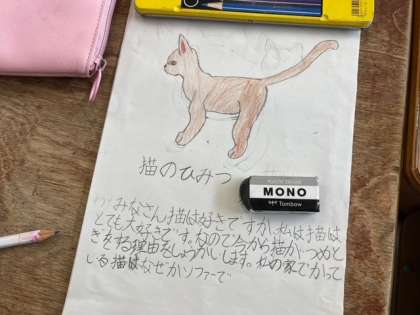 猫のひみつ
MONO
Tombow
みなさん猫は好きですか。私は猫は
とても大好きです。なので今から猫が つめと
ぎをする理由をしょうかいします。私の家でかって
いる猫はなぜかソファーで